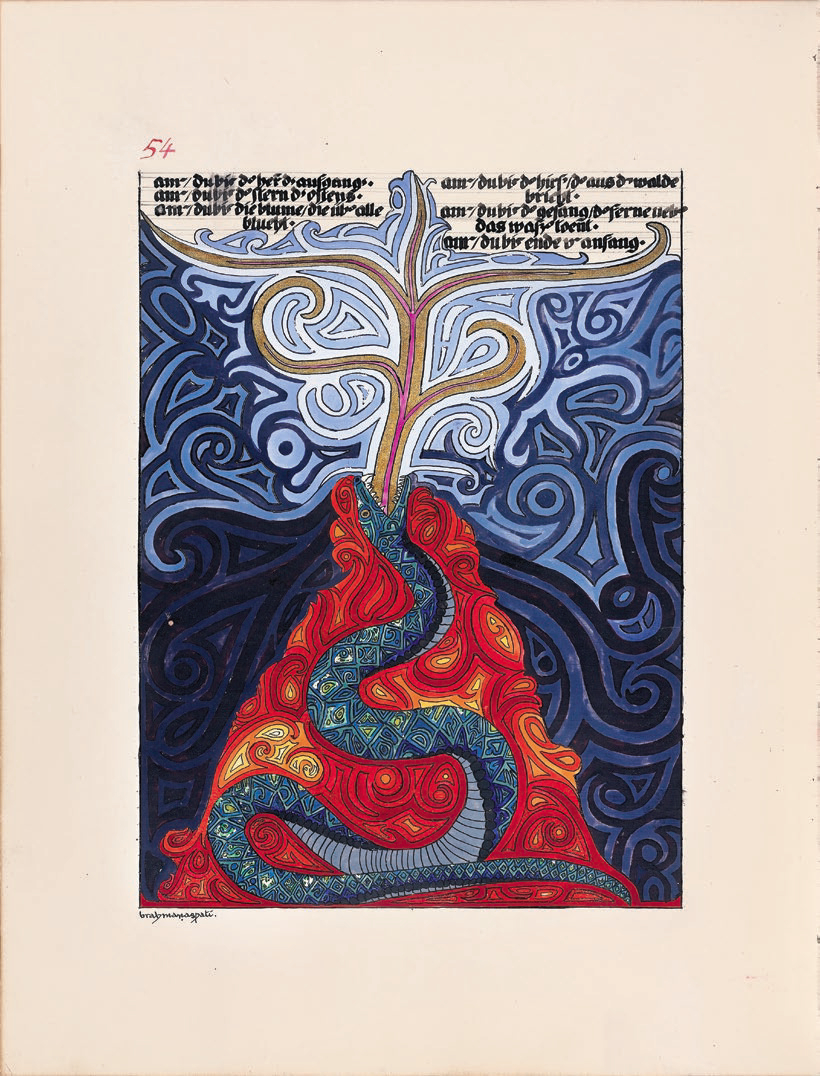 54
am~/ du bi~ d~ her d~ anfang~.
am~/ du bi~ d~ stern d~ ostens.
am~/ du bi~ die blume/ die üb~ alle
blueht.
am~/ du bi~ d~ hirs~/ d~ aus d~ walde
bricht.
am~/ du bi~ d~ gesang/ d~ ferne ueb~
das waß~ toent.
am~/ du bi~ ende v~ anfang.
brahmanaspati.